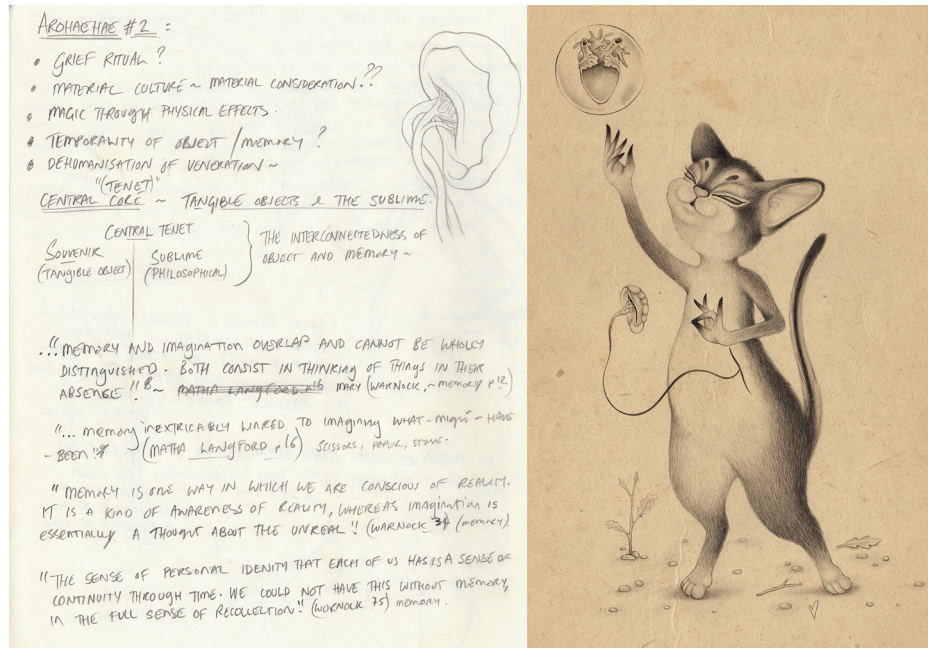 AROHAEHAE #2 :
• GRIEF RITUAL ?
• MATERIAL CULTURE ~ MATERIAL CONSIDERATION. ??
• MAGIC THROUGH PHYSICAL EFFECTS.
• TEMPORALITY OF OBJECT / MEMORY ?
• DEHUMANISATION OF VENERATION ~
"(TENET)"
CENTRAL CORE ~ TANGIBLE OBJECTS & THE SUBLIME.
CENTRAL TENET
SOUVENIR
(TANGIBLE OBJECT)
SUBLIME
(PHILOSOPHICAL)
THE INTERCONNECTEDNESS OF
OBJECT AND MEMORY ~
..."MEMORY AND IMAGINATION OVERLAP AND CANNOT BE WHOLLY
DISTINGUISHED. BOTH CONSIST IN THINKING OF THINGS IN THEIR
ABSENSE!! ~ MATHA LANGFORD. p16 MARY (WARNOCK, ~ MEMORY p12
"... MEMORY INEXTRICABLY LINKED TO IMAGINING WHAT - MIGHT - HAVE
- BEEN" (MATHA LANGFORD p16) SCISSORS, PAPER, STONE.
"MEMORY IS ONE WAY IN WHICH WE ARE CONSCIOUS OF REALITY.
IT IS A KIND OF AWARENESS OF REALITY, WHEREAS IMAGINATION IS
ESSENTIALLY A THOUGHT ABOUT THE UNREAL!! (WARNOCK 34 (MEMORY).
"THE SENSE OF PERSONAL IDENITY THAT EACH OF US HAS IS A SENSE OF
CONTINUITY THROUGH TIME. WE COULD NOT HAVE THIS WITHOUT MEMORY,
IN THE FULL SENSE OF RECOLLECTION." (WORNOCK 75) MEMORY.